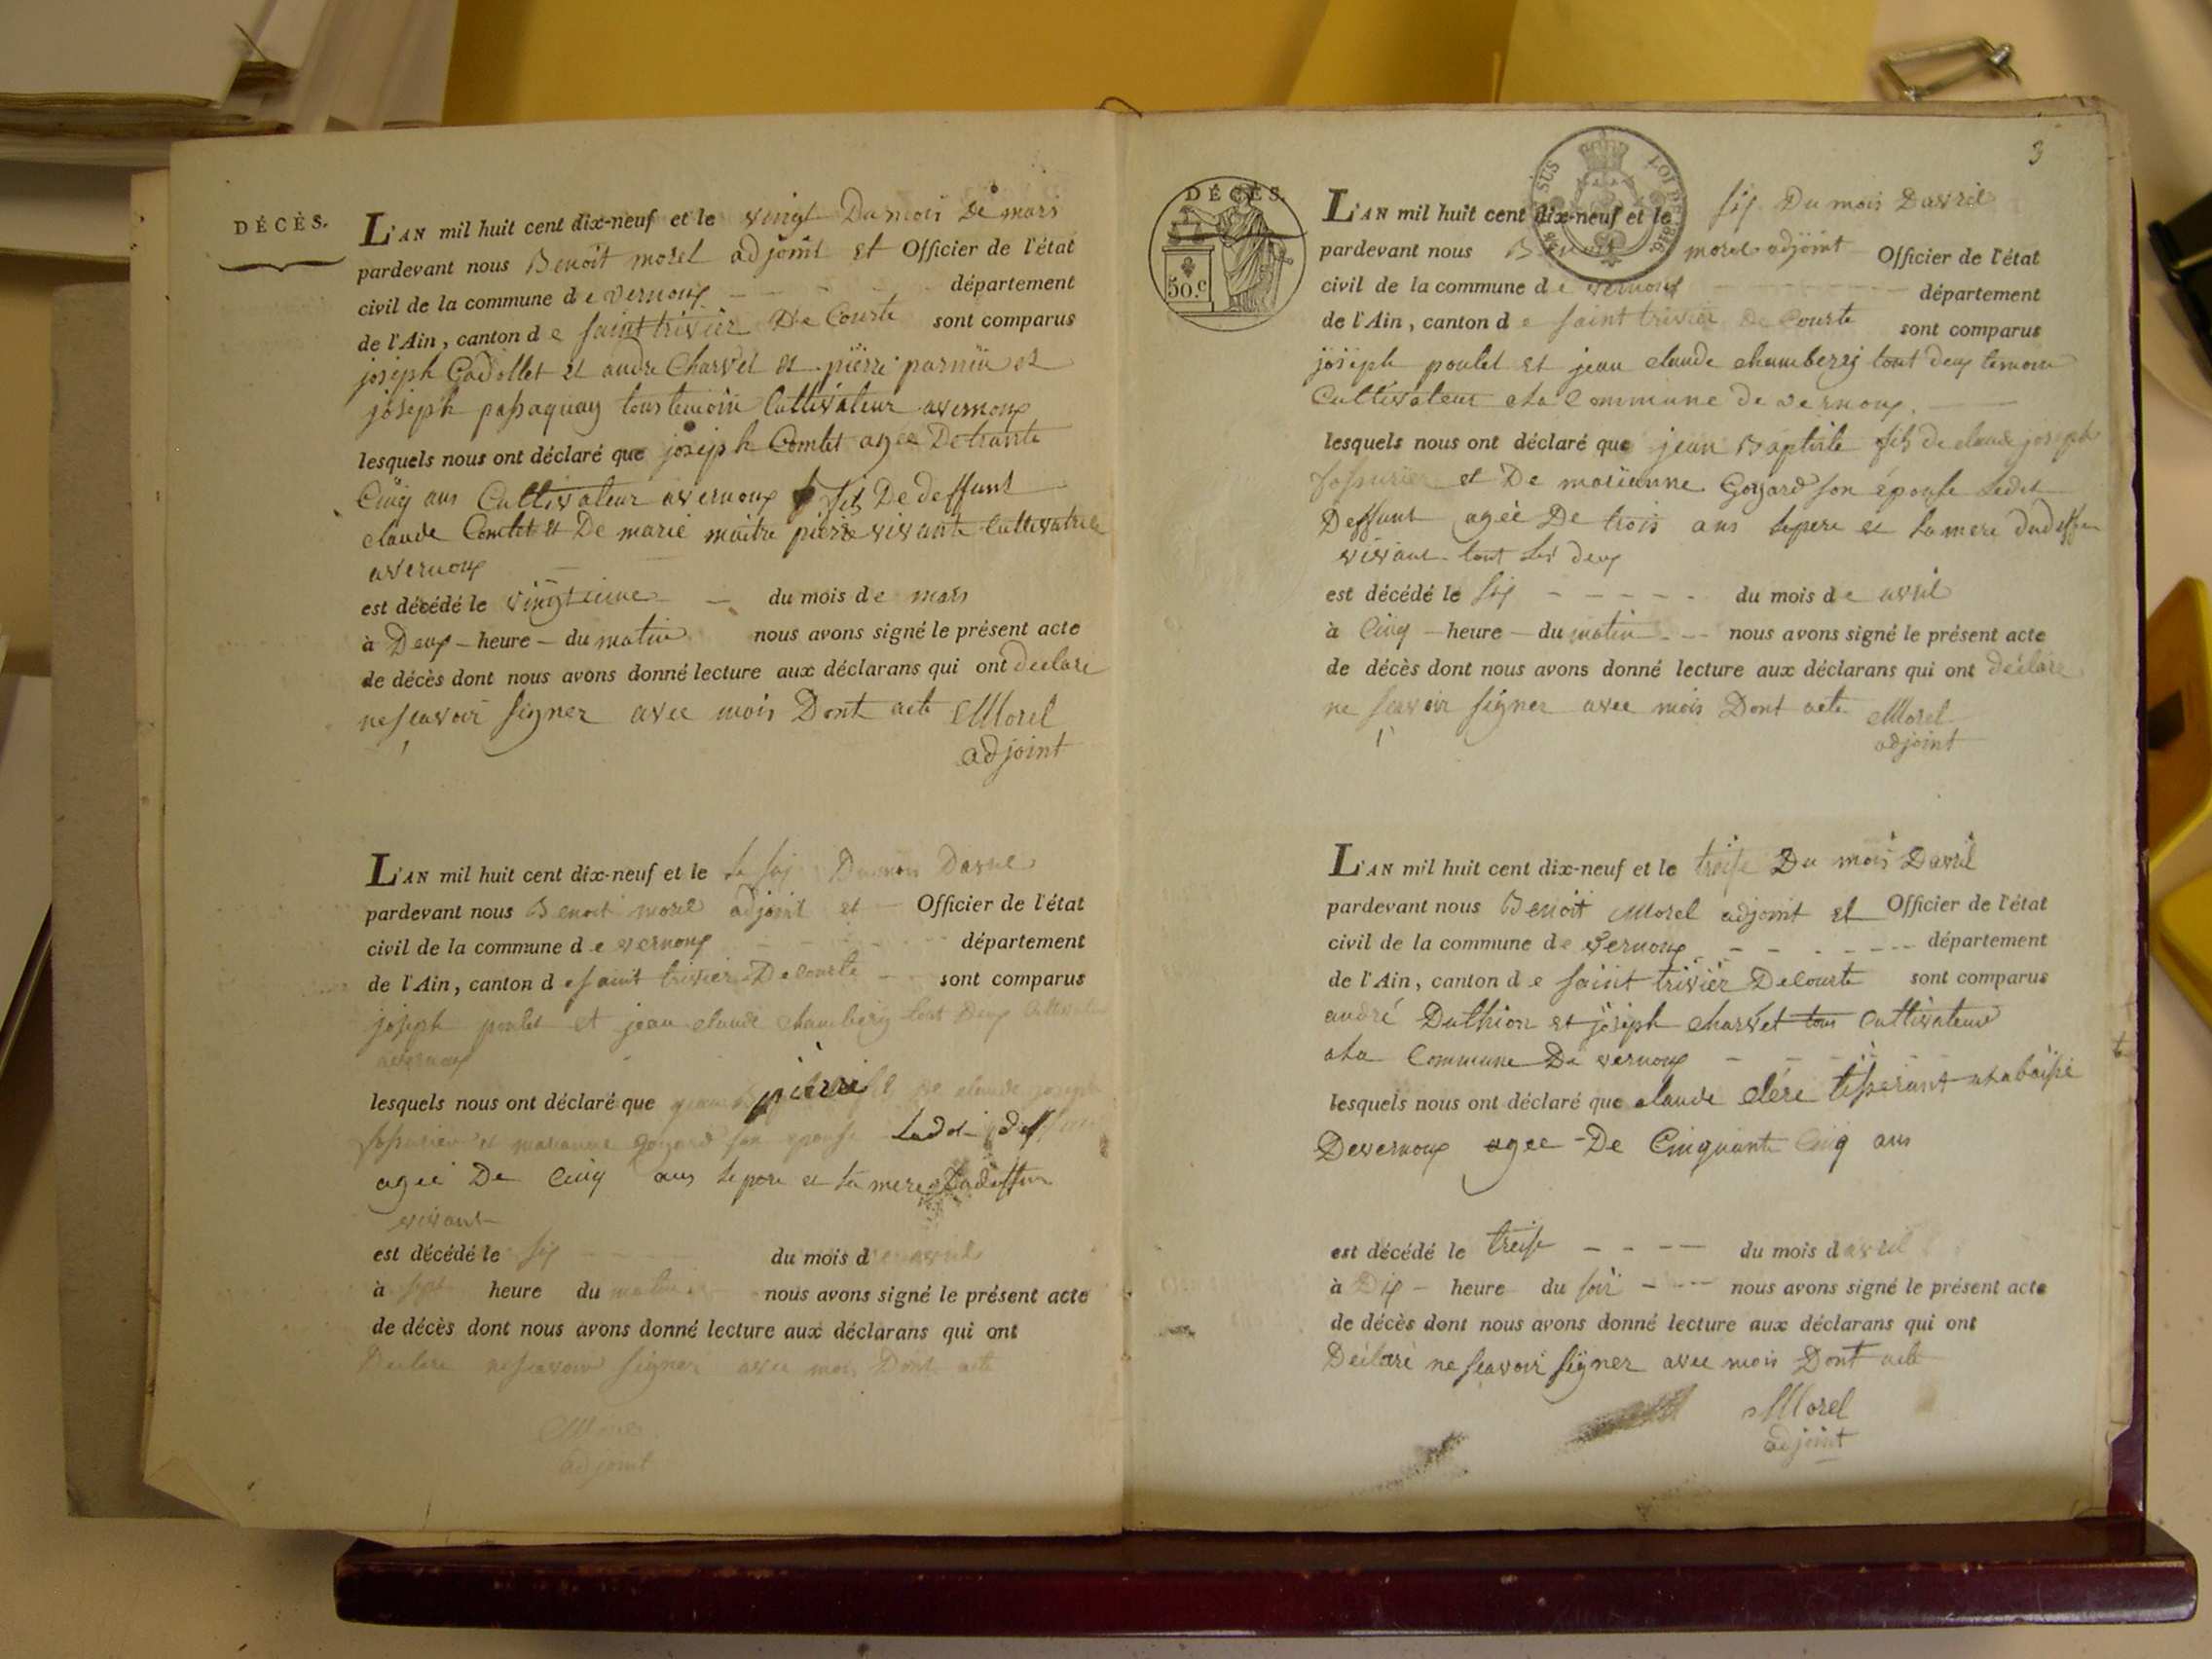 DÉCÈS.
L'AN mil huit cent dix-neuf et le vingt Du mois De mars
pardevant nous Benoit morel adjoint et Officier de l'état
civil de la commune de vernoux département
de l'Ain, canton de saint trivier De Courte sont comparus
joseph Gadollet et andre Charvet et pierre parnin et
joseph passaquay tous temoin Cultivateur avernoux
lesquels nous ont déclaré que joseph Comtet agee De trante
Cinq ans Cultivateur avernoux fils De deffunt
claude Comtet et De marie maitre pierre vivante Cultivatrice
avernoux
est décédé le vingtieme du mois de mars
à Deux heure du matin nous avons signé le présent acte
de décès dont nous avons donné lecture aux déclarans qui ont declaré
ne seavoir signer avec mois Dont acte Morel
adjoint
L'AN mil huit cent dix-neuf et le Le six Du mois Davril
pardevant nous Benoit morel adjoint et Officier de l'état
civil de la commune de vernoux département
de l'Ain, canton de saint trivier Decourte sont comparus
joseph poulet et jean claude chambery tout Deux
avernoux
lesquels nous ont déclaré que pierre de claude joseph
et marianne goyard son epouse
agee De Cinq ans le pere et la mere Dudeffun
vivant
est décédé le six du mois de avril
à sept heure du matin nous avons signé le présent acte
de décès dont nous avons donné lecture aux déclarans qui ont
Declare ne seavoir signer avec mois Dont acte
Morel
adjoint
3
DÉCÈS.
50.c
SUS LOI DE 1816.
L'AN mil huit cent dix-neuf et le six Du mois Davril
pardevant nous Benoit morel adjoint Officier de l'état
civil de la commune de vernoux département
de l'Ain, canton de saint trivier De Courte sont comparus
joseph poulet et jean claude chambery tout deux temoin
Cultivateur ala Commune De vernoux.
lesquels nous ont déclaré que jean Baptiste fils de claude joseph
et De marianne Goyard son épouse Ledit
Deffunt agée De trois ans le pere et la mere dudeffun
vivant tout les deux
est décédé le six du mois de avril
à Cinq heure du matin nous avons signé le présent acte
de décès dont nous avons donné lecture aux déclarans qui ont déclare
ne seavoir signer avec mois Dont acte Morel
adjoint
L'AN mil huit cent dix-neuf et le treise Du mois Davril
pardevant nous Benoit Morel adjoint et Officier de l'état
civil de la commune de vernoux département
de l'Ain, canton de saint trivier Decourte sont comparus
andré Duthion et joseph charvet tous Cultivateur
ala Commune De vernoux
lesquels nous ont déclaré que claude clére tisserant
Devernoux agee De Cinquante Cinq ans
est décédé le treise du mois davril
à Dix heure du soir nous avons signé le présent acte
de décès dont nous avons donné lecture aux déclarans qui ont
Déclaré ne seavoir signer avec mois Dont acte
Morel
adjoint